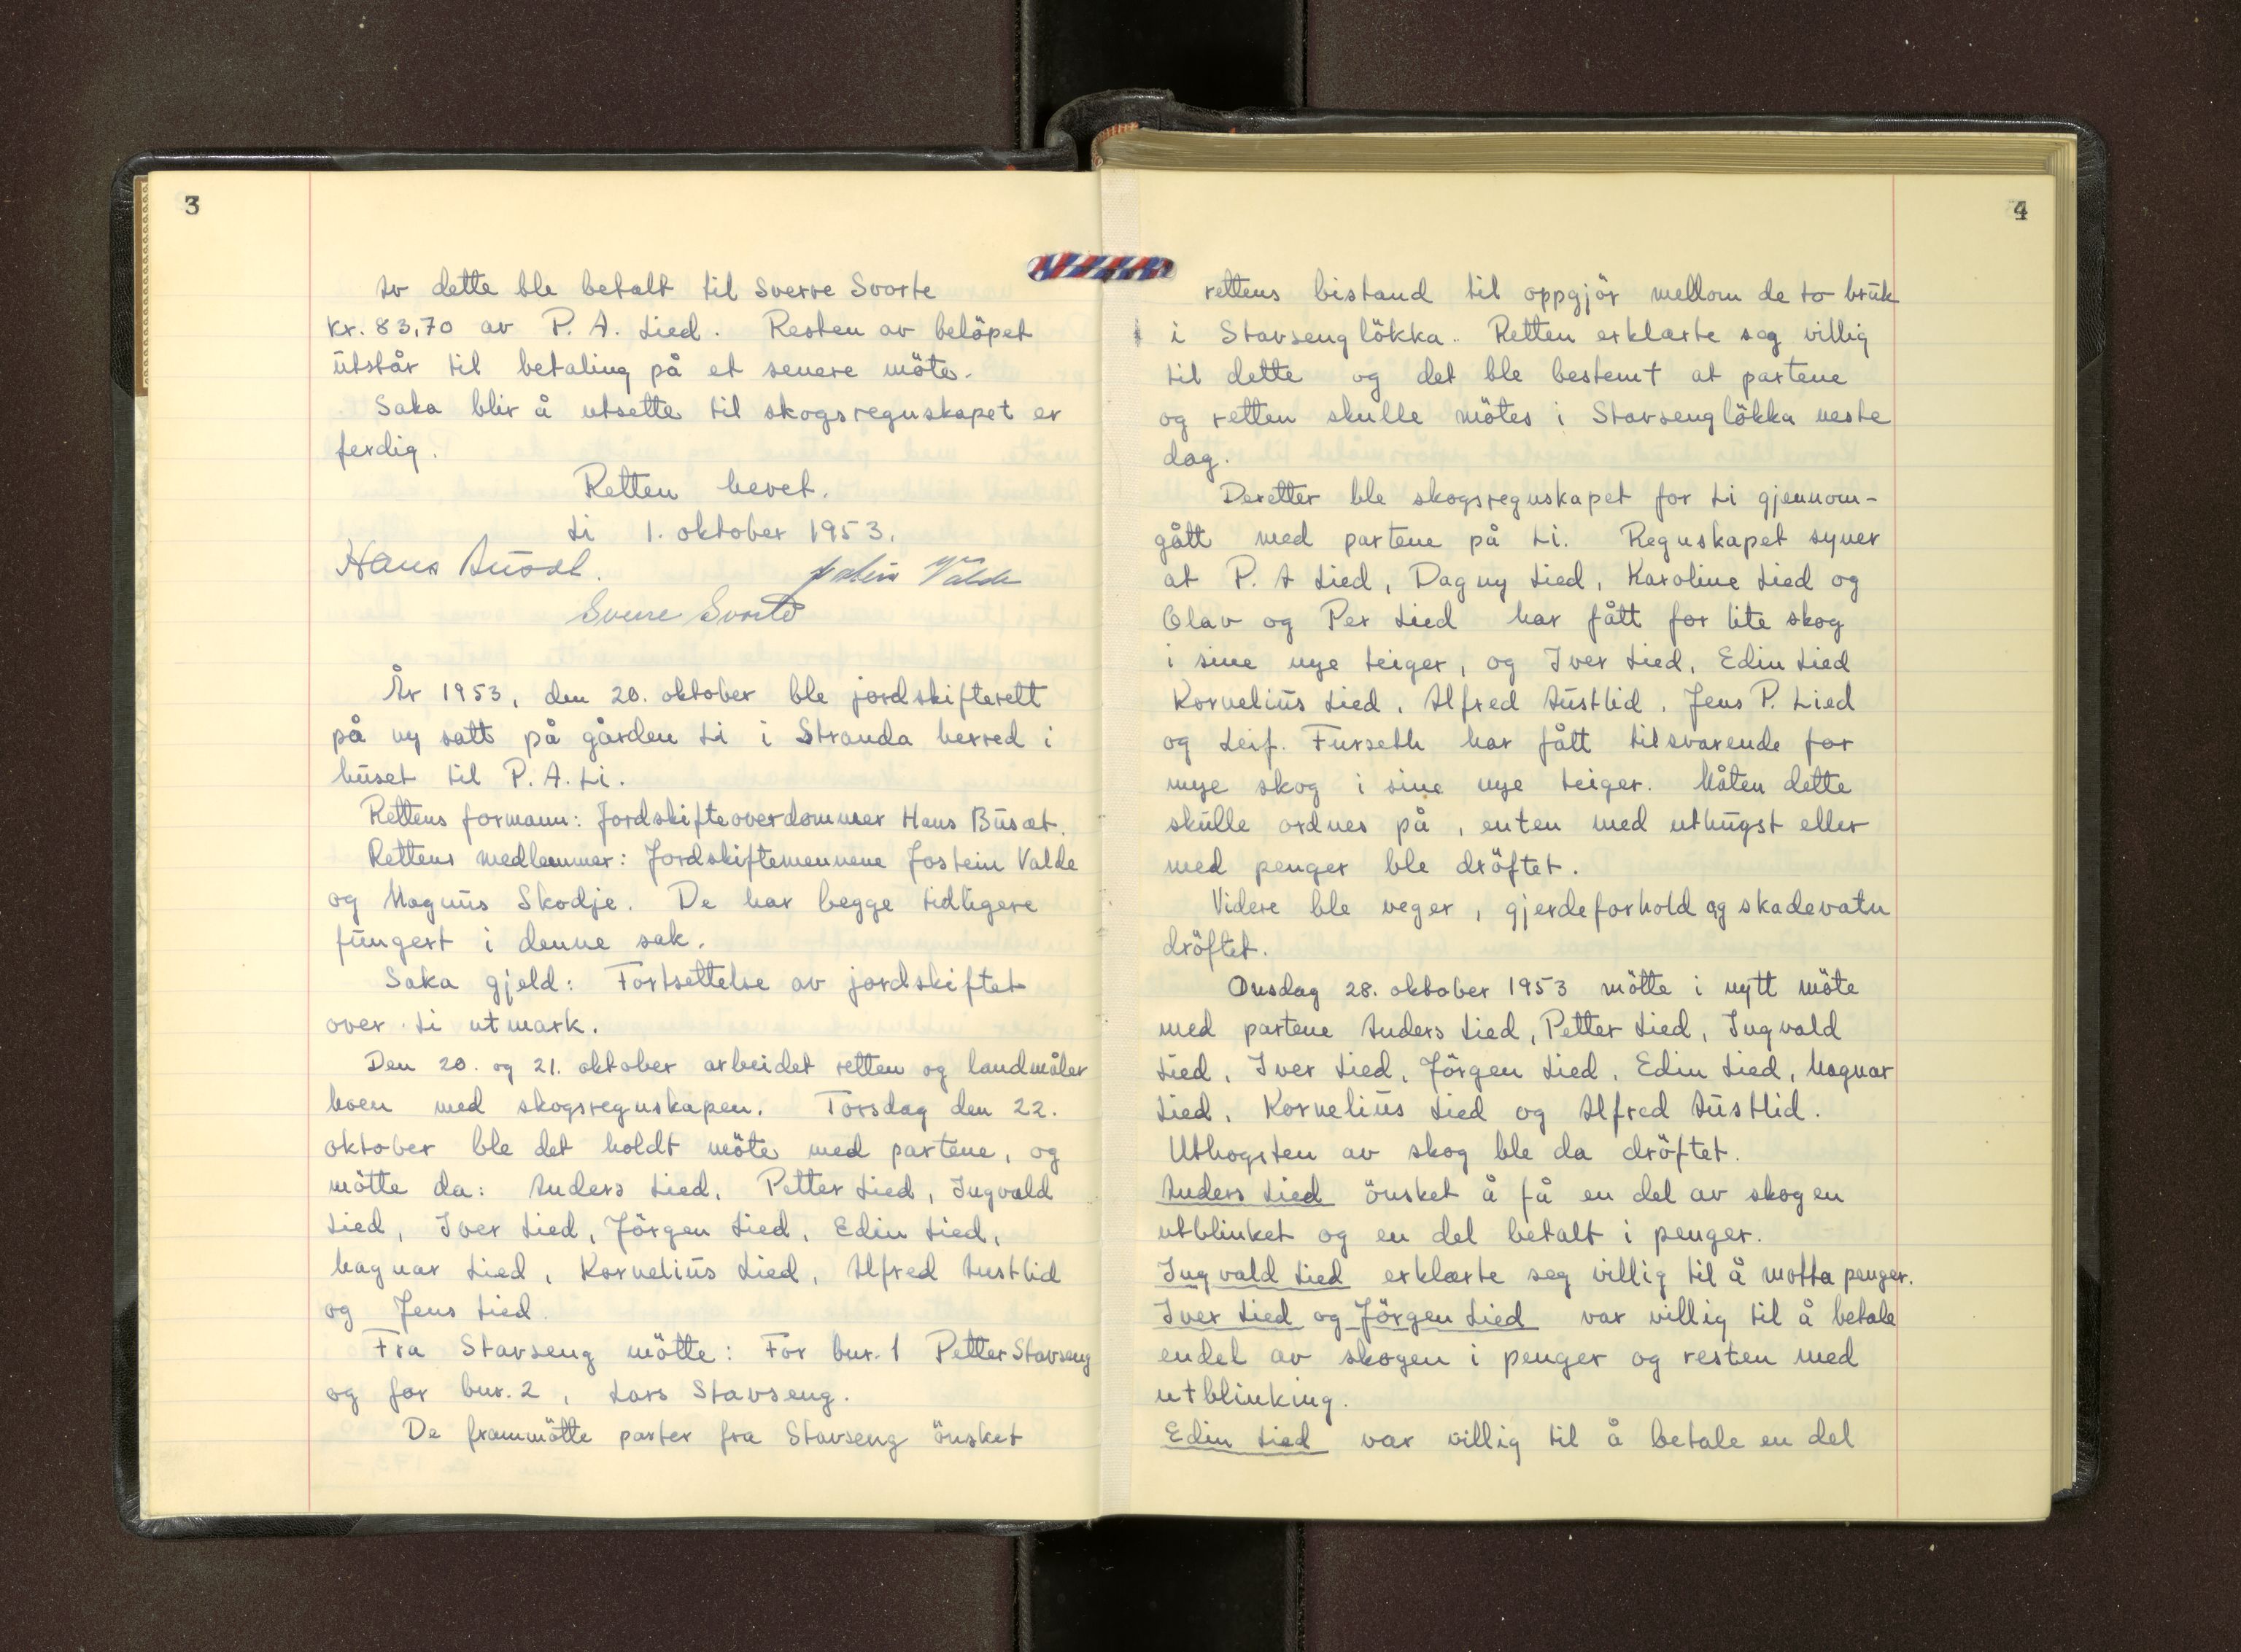 3
Av dette ble betalt til Sverre Svorte
kr. 83,70 av P. A. Lied. Resten av belöpet
utstår til betaling på et senere möte.
Saka blir å utsette til skogsregnskapet er
ferdig.
Retten hevet.
Li 1. oktober 1953.
Hans Busæt. Jostein Valde
Sverre Svorte
År 1953, den 20. oktober ble jordskifterett
på ny satt på gården Li i Stranda herred i
huset til P. A. Li.
Rettens formann: Jordskifteoverdommer Hans Busæt.
Rettens medlemmer: Jordskiftemennene Jostein Valde
og Magnus Skodje. De har begge tidligere
fungert i denne sak.
Saka gjeld: Fortsettelse av jordskiftet
over Li utmark.
Den 20. og 21. oktober arbeidet retten og landmåler
Moen med skogsregnskapen. Torsdag den 22.
oktober ble det holdt möte med partene, og
mötte da: Anders Lied, Petter Lied, Ingvald
Lied, Iver Lied, Jörgen Lied, Edin Lied,
Magnar Lied, Kornelius Lied, Alfred Austlid
og Jens Lied.
Fra Stavseng mötte: For bnr. 1 Petter Stavseng
og for bnr. 2, Lars Stavseng.
De frammötte parter fra Stavseng önsket
4
rettens bistand til oppgjör mellom de to bruk
i Stavsenglökka. Retten erklærte seg villig
til dette og det ble bestemt at partene
og retten skulle mötes i Stavsenglökka neste
dag.
Deretter ble skogsregnskapet for Li gjennom-
gått med partene på Li. Regnskapet syner
at P. A Lied, Dagny Lied, Karoline Lied og
Olav og Per Lied har fått for lite skog
i sine nye teiger, og Iver Lied, Edin Lied
Kornelius Lied, Alfred Austlid, Jens P. Lied
og Leif. Furseth har fått tilsvarende for
mye skog i sine nye teiger. Måten dette
skulle ordnes på, enten med uthugst eller
med penger ble dröftet.
Videre ble veger, gjerdeforhold og skadevatn
dröftet.
Onsdag 28. oktober 1953 mötte i nytt möte
med partene Anders Lied, Petter Lied, Ingvald
Lied, Iver Lied, Jörgen Lied, Edin Lied, Magnar
Lied, Kornelius Lied og Alfred Austlid.
Uthogsten av skog ble da dröftet.
Anders Lied önsket å få en del av skogen
utblinket og en del betalt i penger.
Ingvald Lied erklærte seg villig til å motta penger.
Iver Lied og Jörgen Lied var villig til å betale
endel av skogen i penger og resten med
utblinking.
Edin Lied var villig til å betale en del